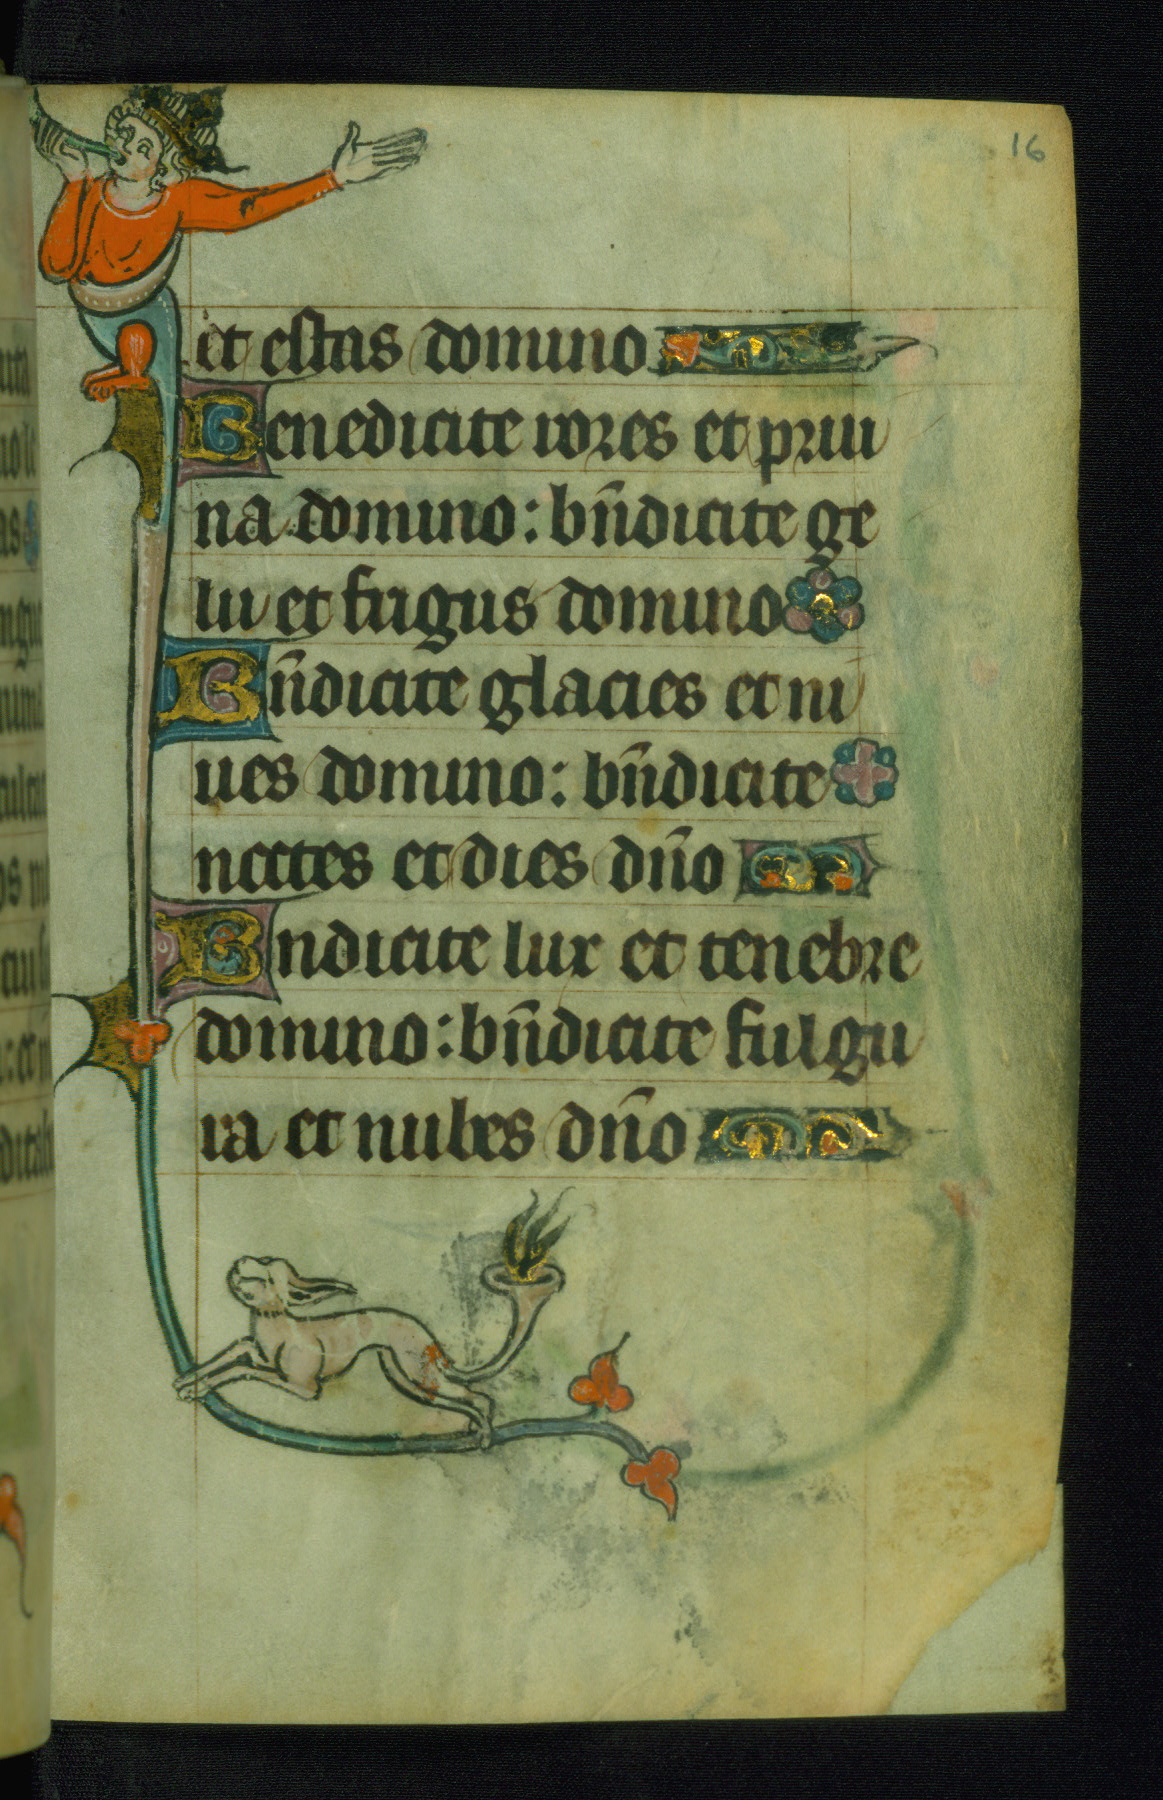 16
et estas domino
Benedicite rores et prui
na domino: bn̄dicite ge
lu et frigus domino
Bn̄dicite glacies et ni
ues domino: bn̄dicite
noctes et dies dn̄o
Bndicite lux et tenebre
domino: bn̄dicite fulgu
ra et nubes dn̄o